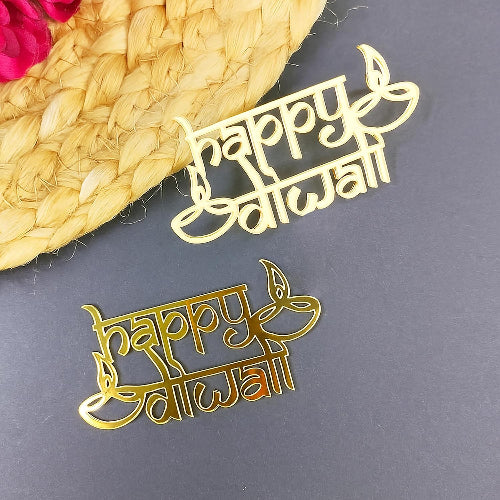 happy
diwali
happy
diwali